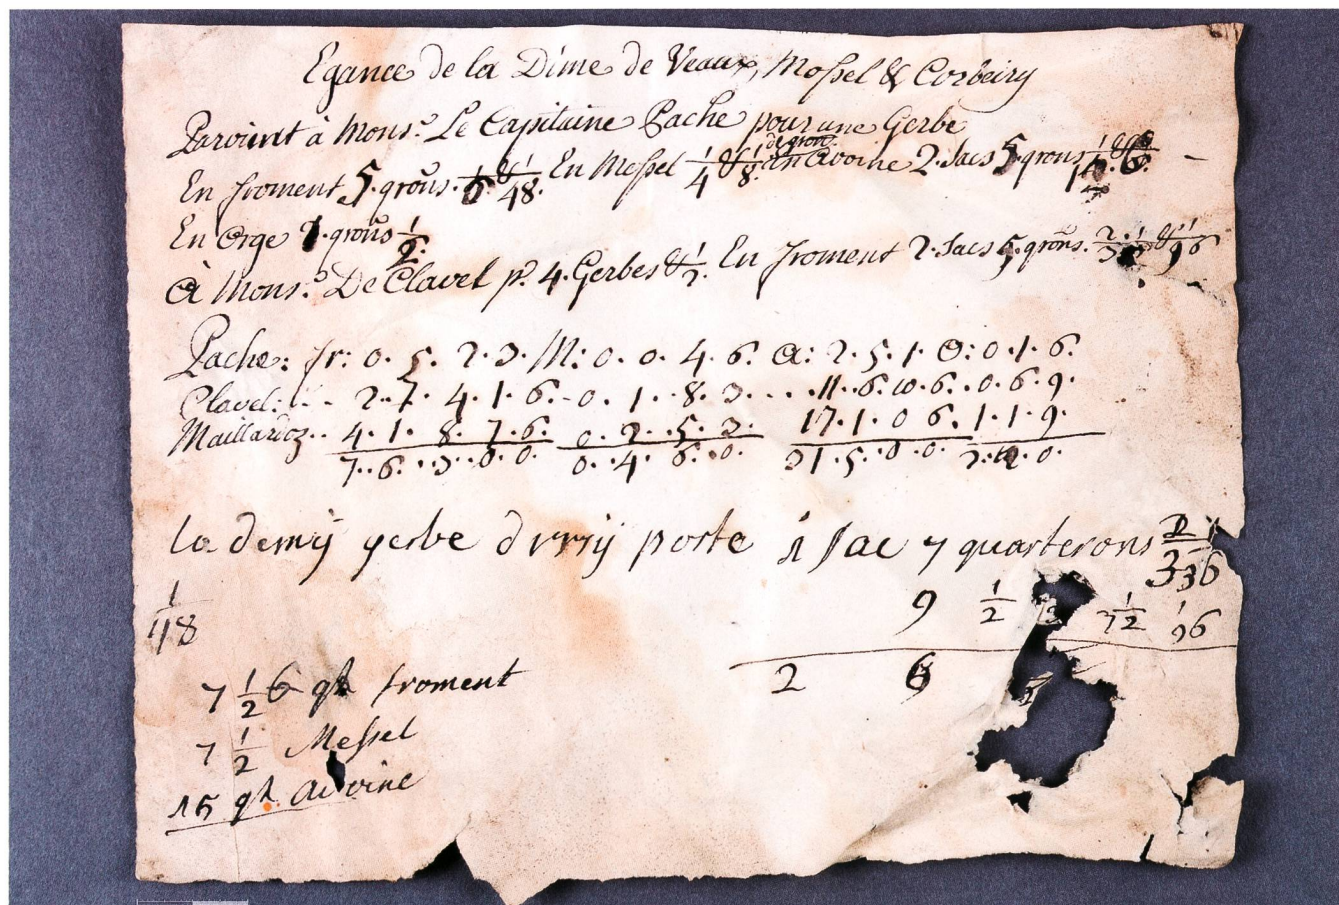 Egance de la Dime de Veaux, Mossel & Corbeiry
Parvient à Mons.r Le Capitaine Pache pour une Gerbe
de gron.
En froment 5. grons. & 1/48. En Messel 1/4 & 1/8. en Avoine 2. Sacs 5. grons
En Orge 1. grons 1/2.
A Mons.r De Clavel p.r 4. Gerbes & 1/2. En froment 2. Sacs 5. grons. 2/3 & 1/96
Pache: fr: 0. 5. 2. 3. M: 0. 0. 4. 6. A: 2. 5. 1. O: 0. 1. 6.
Clavel: 2. 7. 4. 1. 6. - 0. 1. 8. 3. .. 11. 6. 10. 6. 0. 6. 9.
Maillardoz .. 4. 1. 8. 7. 6. 0. 2. 5. 3. 17. 1. 0 6. 1. 1. 9.
7. 6. 3. 0. 0. 0. 4. 6. 0. 31. 5. 0. 0. 2. 0.
la demÿ gerbe porte 1 sac 7 quarterons
1/48
9 1/2 1/2 1/96
7 1/2 froment
2 6
7 1/2 Messel
15 qr. avoine